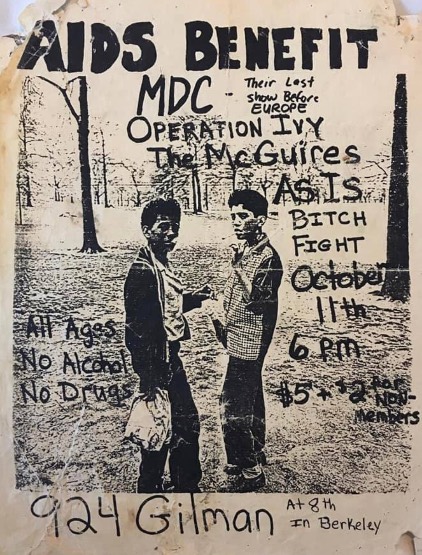 AIDS BENEFIT
MDC - Their Last
show Before
EUROPE
OPERATION IVY
The McGuires
AS IS
BITCH
FIGHT
October
11th
6 pm
$5 + $2 for
NON-
members
All Ages
No Alcohol
No Drugs
924 Gilman At 8th
In Berkeley